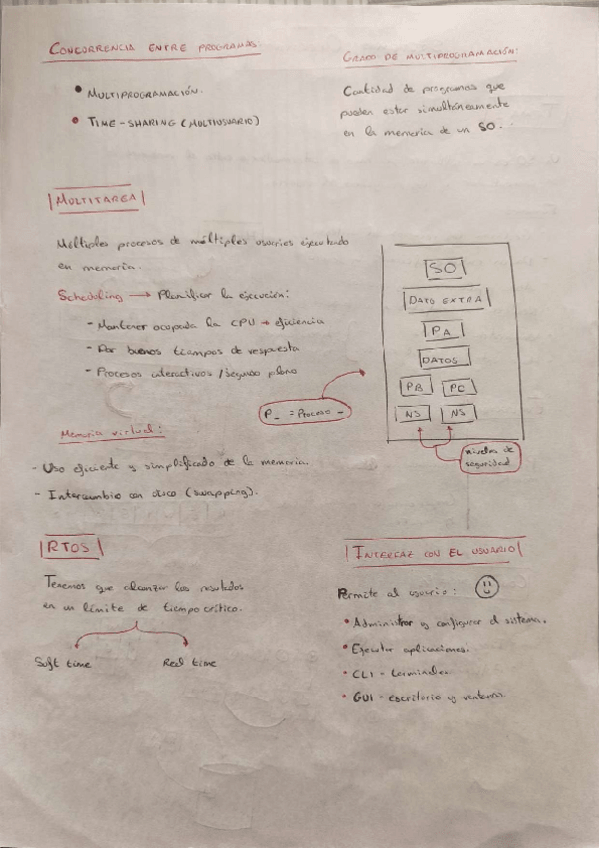 CONCURRENCIA ENTRE PROGRAMAS:
• MULTIPROGRAMACIÓN.
• TIME-SHARING (MULTIUSUARIO)
GRADO DE MULTIPROGRAMACIÓN:
Cantidad de programas que
pueden estar simultáneamente
en la memoria de un SO.
MULTITAREA
Múltiples procesos de múltiples usuarios ejecutado
en memoria.
Scheduling → Planificar la ejecución:
- Mantener ocupada la CPU → eficiencia
- Dar buenos tiempos de respuesta
- Procesos interactivos / segundo plano
P_ = Proceso _
SO
DATO EXTRA
PA
DATOS
PB PC
NS NS
niveles de
seguridad
Memoria virtual:
- Uso eficiente y simplificado de la memoria.
- Intercambio con disco (swapping).
RTOS
Tenemos que alcanzar los resultados
en un límite de tiempo crítico.
Soft time Real time
INTERFAZ CON EL USUARIO
Permite al usuario:
• Administrar y configurar el sistema.
• Ejecutar aplicaciones.
• CLI - terminales
• GUI - escritorio y ventanas.